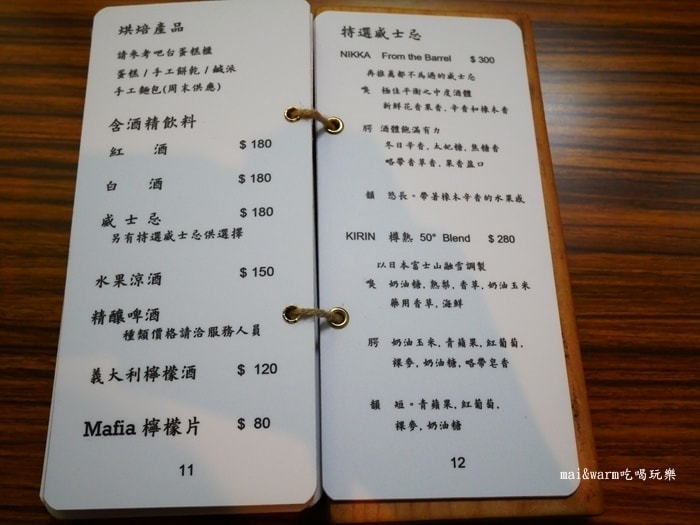 烘焙產品
請參考吧台蛋糕櫃
蛋糕/手工餅乾/鹹派
手工麵包(周末供應)
含酒精飲料
紅 酒 $ 180
白 酒 $ 180
威士忌 $ 180
另有特選威士忌供選擇
水果涼酒 $ 150
精釀啤酒
種類價格請洽服務人員
義大利檸檬酒 $ 120
Mafia 檸檬片 $ 80
11
特選威士忌
NIKKA From the Barrel $ 300
再推薦都不為過的威士忌
嗅 極佳平衡之中度酒體
新鮮花香果香,辛香和橡木香
腭 酒體飽滿有力
冬日辛香,太妃糖,焦糖香
略帶香草香,果香盈口
韻 悠長。帶著橡木辛香的水果感
KIRIN 樽熟 50° Blend $ 280
以日本富士山融雪調製
嗅 奶油糖,熟梨,香草,奶油玉米
藥用香草,海鮮
腭 奶油玉米,青蘋果,紅葡萄,
裸麥,奶油糖,略帶皂香
韻 短。青蘋果,紅葡萄,
裸麥,奶油糖
12
mai&warm吃喝玩樂